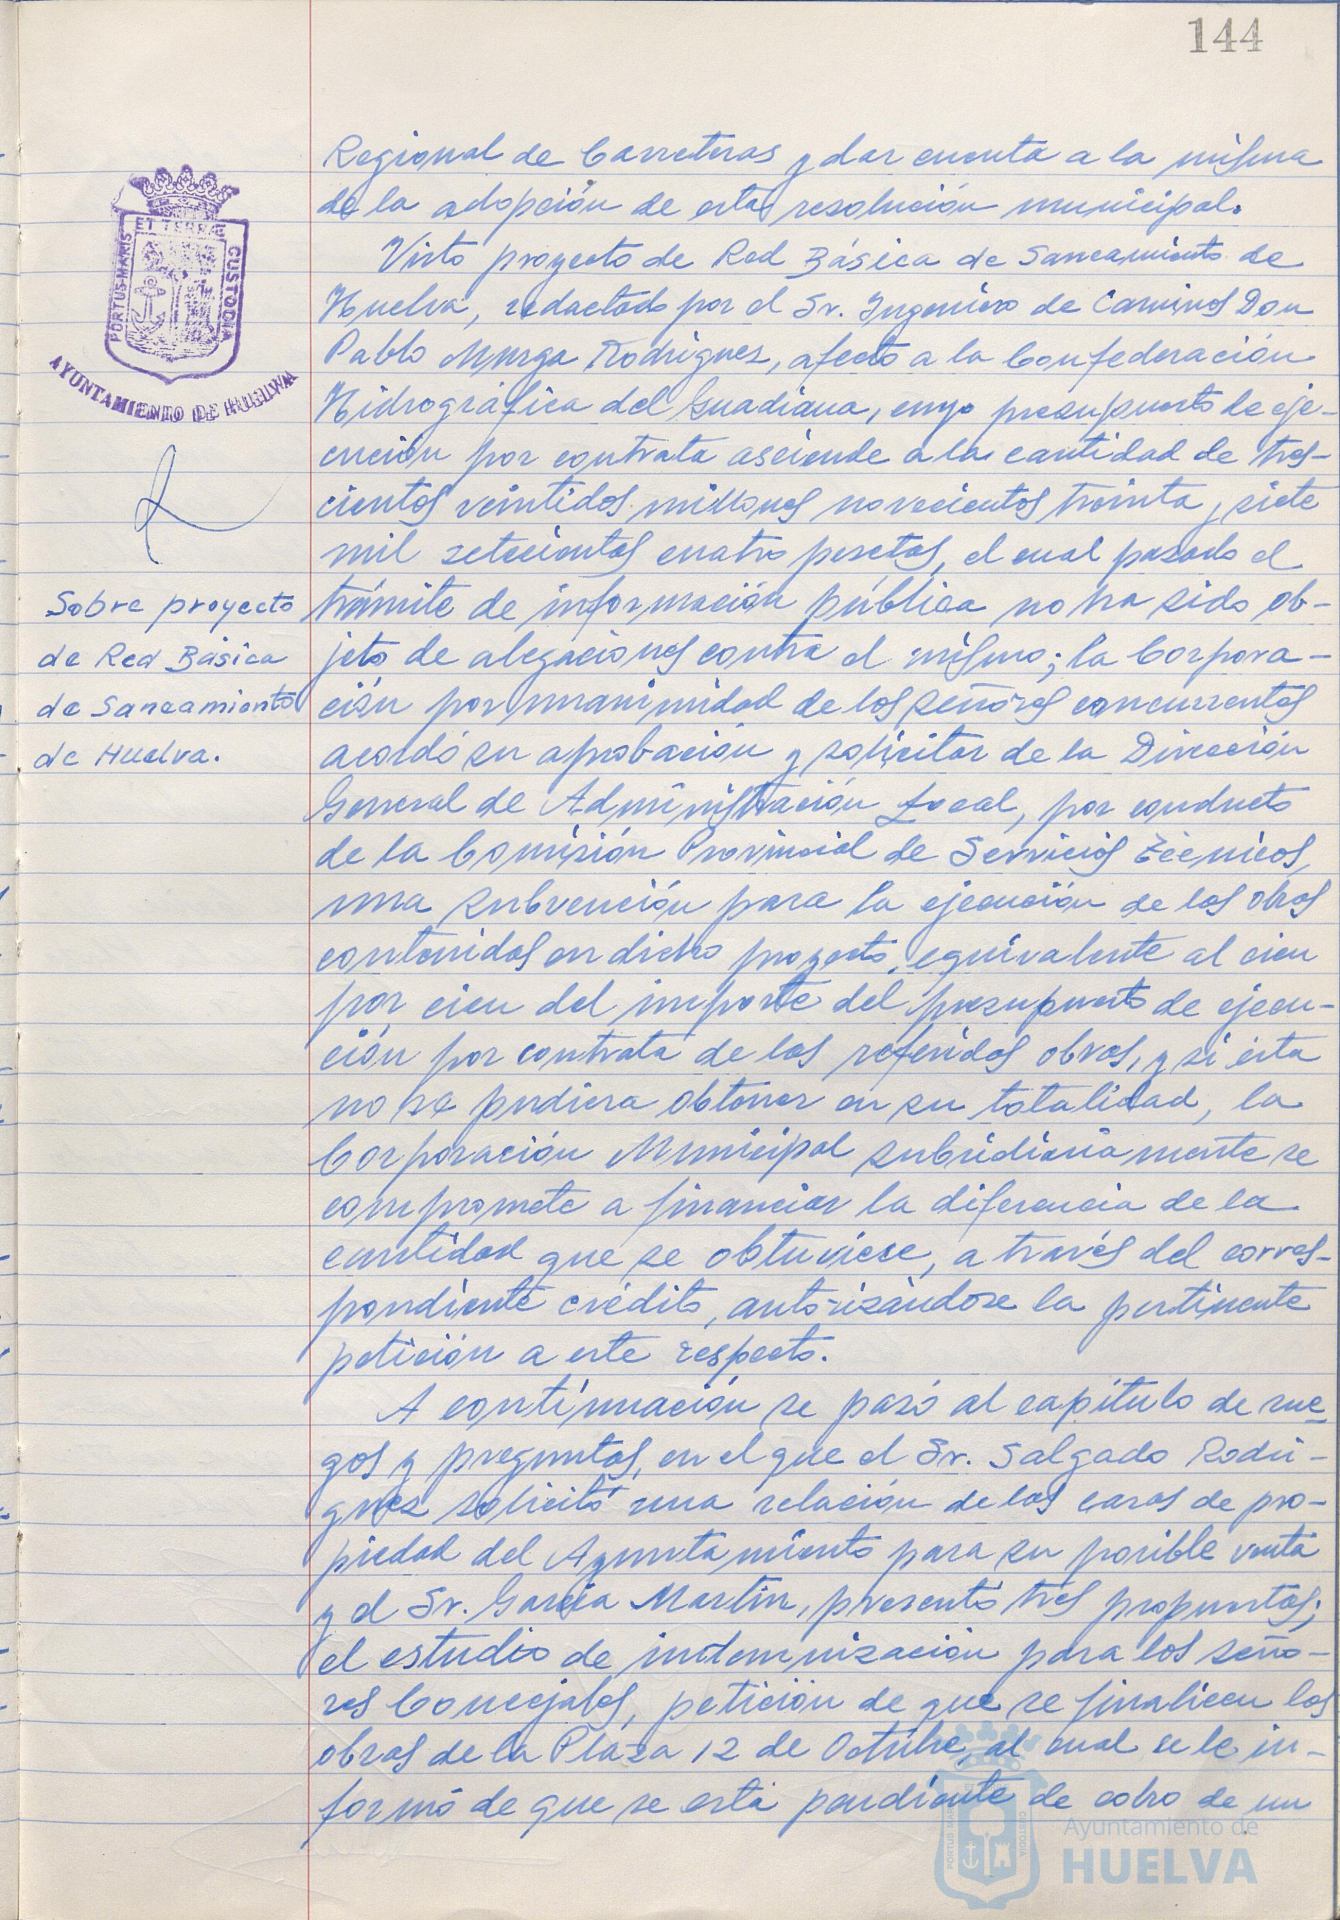 144
Regional de Carreteras y dar cuenta a la misma
de la adopción de esta resolución municipal.
Visto proyecto de Red Básica de Saneamiento de
Huelva, redactado por el Sr. Ingeniero de Caminos Don
Pablo Murga Rodriguez, afecto a la Confederación
Hidrográfica del Guadiana, cuyo presupuesto de eje-
cución por contrata asciende a la cantidad de tres-
cientos veintidos millones novecientos treinta y siete
mil setecientos cuatro pesetas, el cual pasado el
trámite de información pública no ha sido ob-
jeto de alegaciones contra el mismo; la Corpora-
ción por unanimidad de los señores concurrentes
acordó su aprobación y solicitar de la Dirección
General de Administración Local, por conducto
de la Comisión Provincial de Servicios Técnicos,
una subvención para la ejecución de las obras
contenidas en dicho proyecto, equivalente al cien
por cien del importe del presupuesto de ejecu-
ción por contrata de las referidas obras, y si ésta
no se pudiera obtener en su totalidad, la
Corporación Municipal subsidiariamente se
compromete a financiar la diferencia de la
cantidad que se obtuviese, a través del corres-
pondiente crédito, autorizándose la pertinente
petición a este respecto.
A continuación se pasó al capítulo de rue-
gos y preguntas, en el que el Sr. Salgado Rodri-
guez solicitó una relación de las casas de pro-
piedad del Ayuntamiento para su posible venta
y el Sr. García Martín, presentó tres propuestas;
el estudio de indemnización para los seño-
res Concejales, petición de que se finalicen las
obras de la Plaza 12 de Octubre, al cual se le in-
formó de que se está pendiente de cobro de un
PORTUS MARIS
ET TERRAE
CUSTODIA
AYUNTAMIENTO DE HUELVA
Sobre proyecto
de Red Básica
de Saneamiento
de Huelva.
Ayuntamiento de
HUELVA